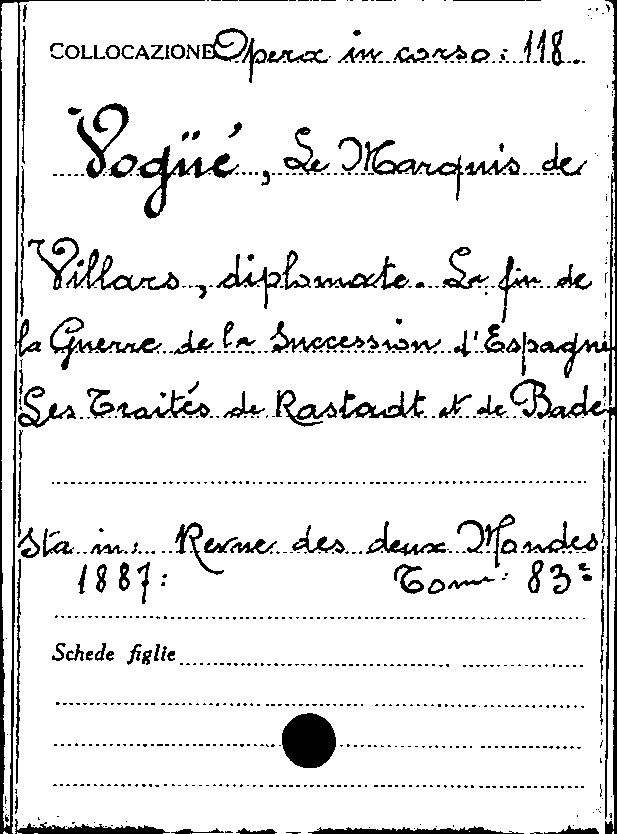 COLLOCAZIONE Opera in corso: 118.
Vogüé, Le Marquis de
Villars, diplomate. La fin de
la Guerre de la Succession d'Espagne
Les Traités de Rastadt et de Bade.
Sta in: Revue des deux Mondes
1887: Tome: 83º
Schede figlie